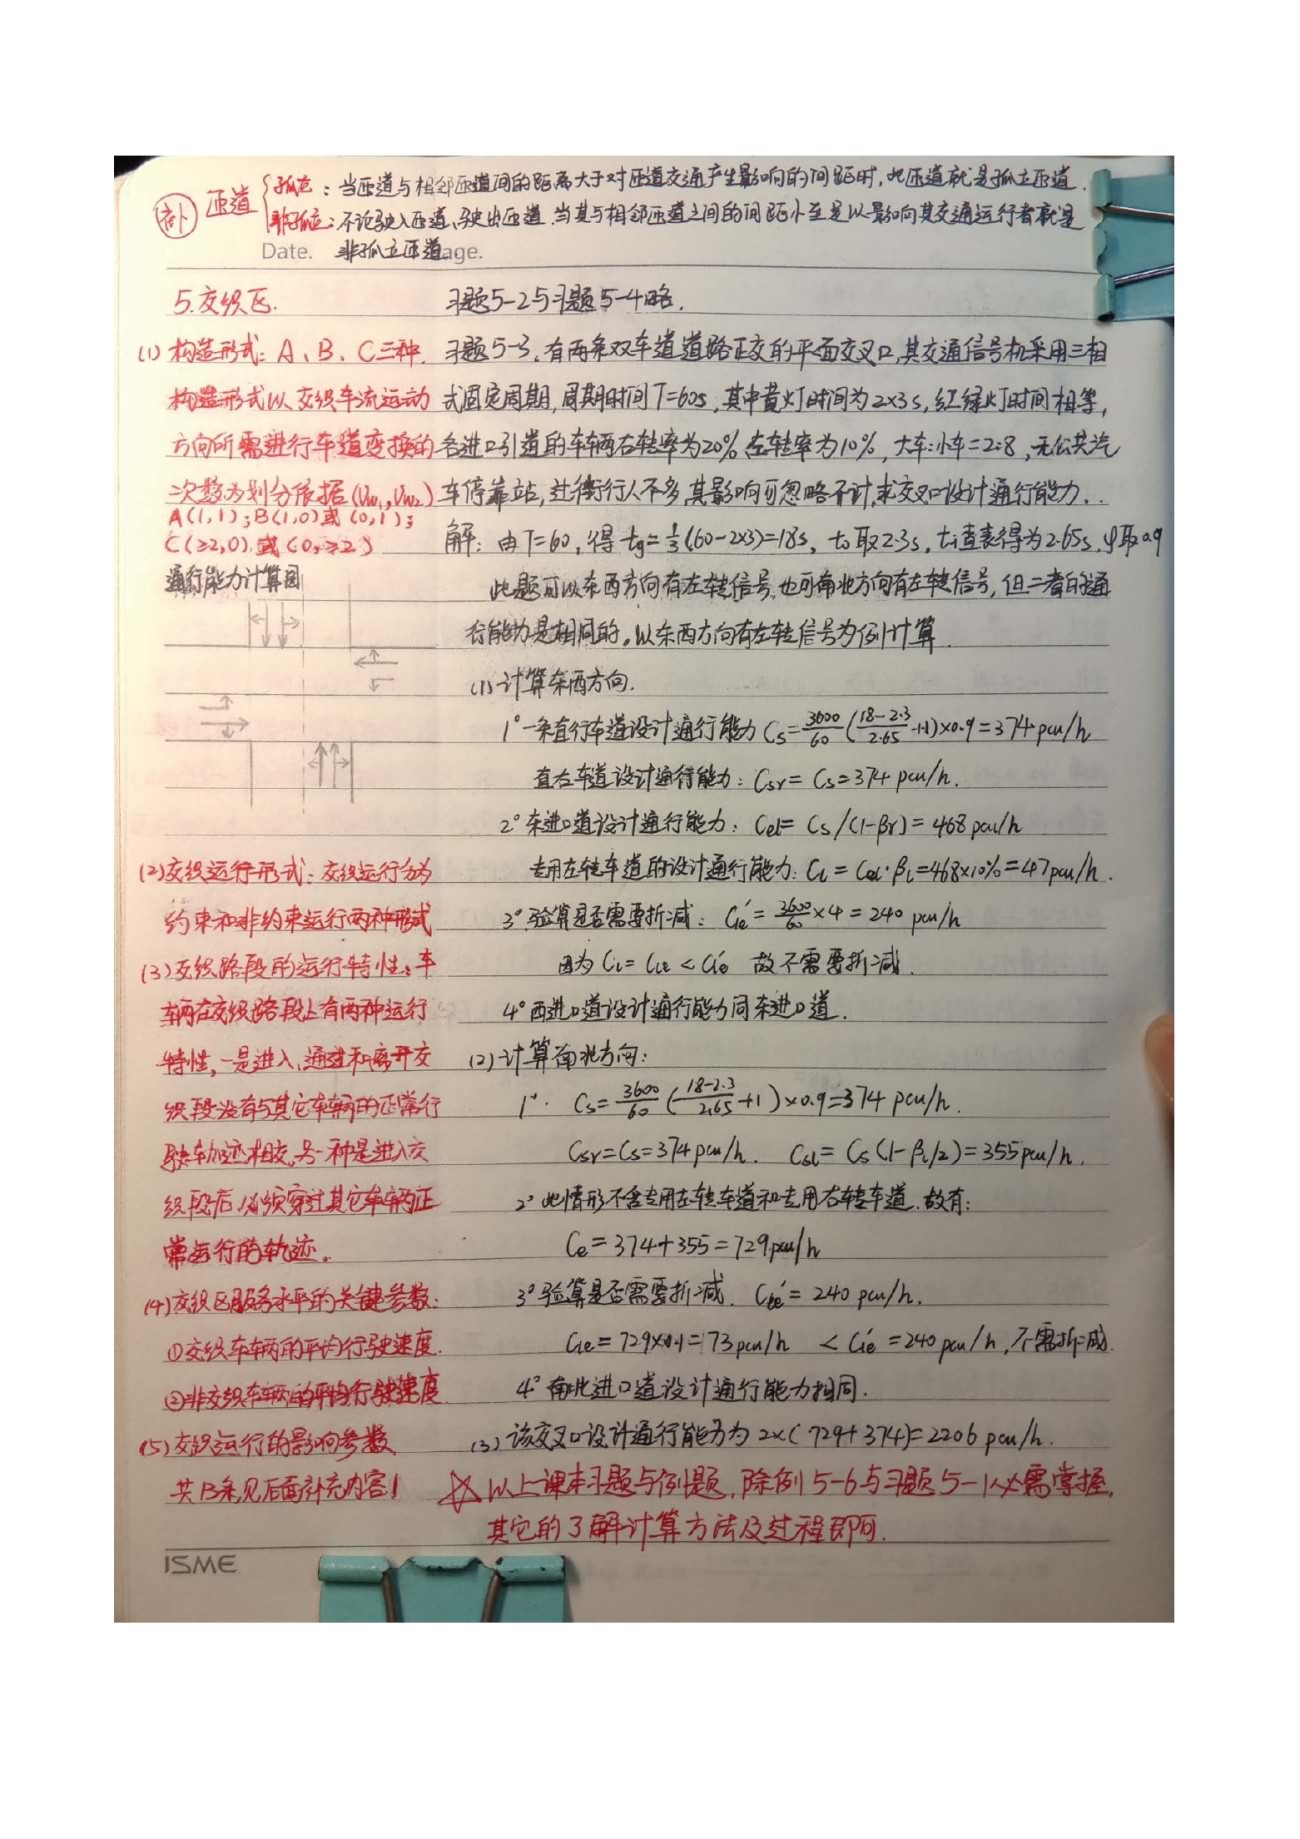 补 匝道
孤立：当匝道与相邻匝道间的距离大于对匝道交通产生影响的间距时，此匝道就是孤立匝道.
非孤立：不论驶入匝道、驶出匝道.当其与相邻匝道之间的间距小至足以影响其交通运行者就是
Date. 非孤立匝道age.
5.交织区.
(1) 构造形式：A、B、C三种.
构造形式以交织车流运动
方向所需进行车道变换的
次数为划分依据(Vw₁,Vw₂)
A(1,1)；B(1,0)或(0,1)；
C(≥2,0)或(0,≥2)
通行能力计算图
(2)交织运行形式：交织运行分为
约束和非约束运行两种形式
(3)交织路段的运行特性：车
车辆在交织路段上有两种运行
特性，一是进入、通过和离开交
织段没有与其它车辆的正常行
驶轨迹相交，另一种是进入交
织段后，必须穿过其它车辆正
常运行的轨迹。
(4)交织区服务水平的关键参数：
①交织车车辆的平均行驶速度.
②非交织车辆的平均行驶速度
(5)交织运行的影响参数、
共13条见后面补充内容！
习题5-2与习题5-4略.
习题5-3.有两条双车道道路正交的平面交叉口，其交通信号机采用三相
式固定周期，周期时间T=60s，其中黄灯时间为2×3s，红绿灯时间相等，
各进口引道的车辆右转率为20%，左转率为10%，大车:小车=2:8，无公共汽
车停靠站，过街行人不多，其影响可忽略不计，求交叉口设计通行能力..
解：由T=60，得 tg=1/3(60-2×3)=18s，t₀取2.3s，ti查表得为2.65s.φ取0.9
此题可以东西方向有左转信号，也可南北方向有左转信号，但二者的通
行能力是相同的。以东西方向有左转信号为例计算.
(1)计算东西方向.
1°一条直行车道设计通行能力 Cs=3600/60(18-2.3/2.65+1)×0.9=374pcu/h
直右车道设计通行能力：Csr=Cs=374pcu/h.
2°东进口道设计通行能力：Cel=Cs/(1-βr)=468pcu/h
专用左转车道的设计通行能力：Cl=Cel·βl=468×10%=47pcu/h.
3°验算是否需要折减：Cle′=3600/60×4=240 pcu/h
因为Cl=Cle<Cle′ 故不需要折减.
4°西进口道设计通行能力同东进口道.
(2)计算南北方向：
1°. Cs=3600/60(18-2.3/2.65+1)×0.9=374 pcu/h.
Csr=Cs=374pcu/h. Csl=Cs(1-βl/2)=355pcu/h.
2°此情形不含专用左转车道和专用右转车道.故有：
Ce=374+355=729pcu/h
3°验算是否需要折减. Cle′=240 pcu/h.
Cle=729×0.1=73pcu/h <Cle′=240pcu/h，不需折减.
4°南北进口道设计通行能力相同.
(3)该交叉口设计通行能力为 2×(729+374)=2206pcu/h.
☆以上课本习题与例题，除例5-6与习题5-1必需掌握，
其它的了解计算方法及过程即可.
ISME